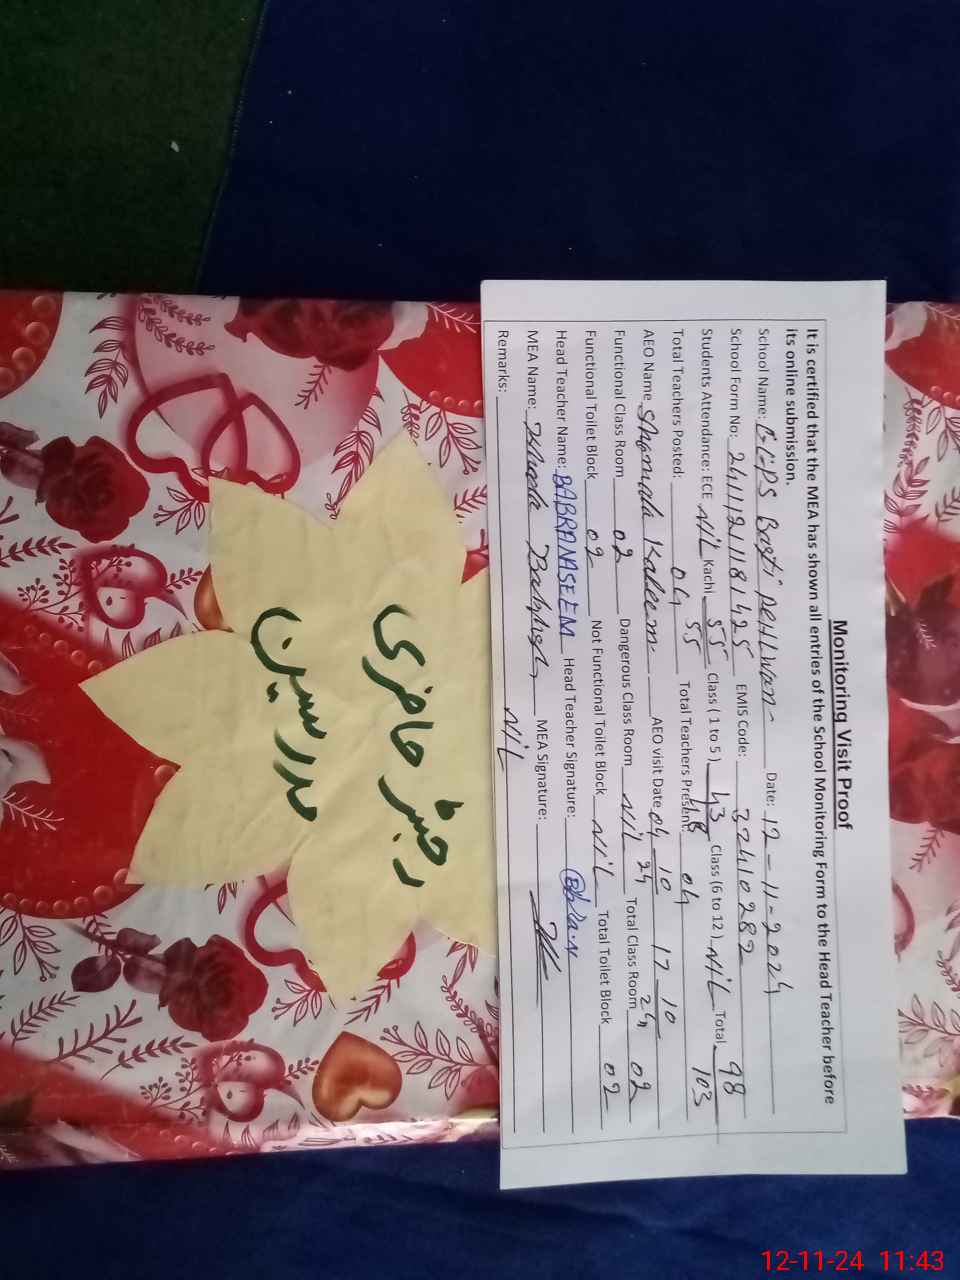 Monitoring Visit Proof
It is certified that the MEA has shown all entries of the School Monitoring Form to the Head Teacher before
its online submission.
School Name: GGPS Basti Pehlwan Date: 12-11-2024
School Form No: 2411121181425 EMIS Code: 32410282
Students Attendance: ECE NiL Kachi 55 Class (1 to 5) 43 Class (6 to 12) NiL Total 98
55 48 103
Total Teachers Posted: 04 Total Teachers Present: 04
AEO Name Kaleem AEO visit Date 04 10 24 17 10 24
Functional Class Room 02 Dangerous Class Room NiL Total Class Room 02
Functional Toilet Block 02 Not Functional Toilet Block NiL Total Toilet Block 02
Head Teacher Name: BABRA NASEEM Head Teacher Signature:
MEA Name: MEA Signature:
Remarks: NiL
رجسٹر حاضری
مدرسین
12-11-24 11:43